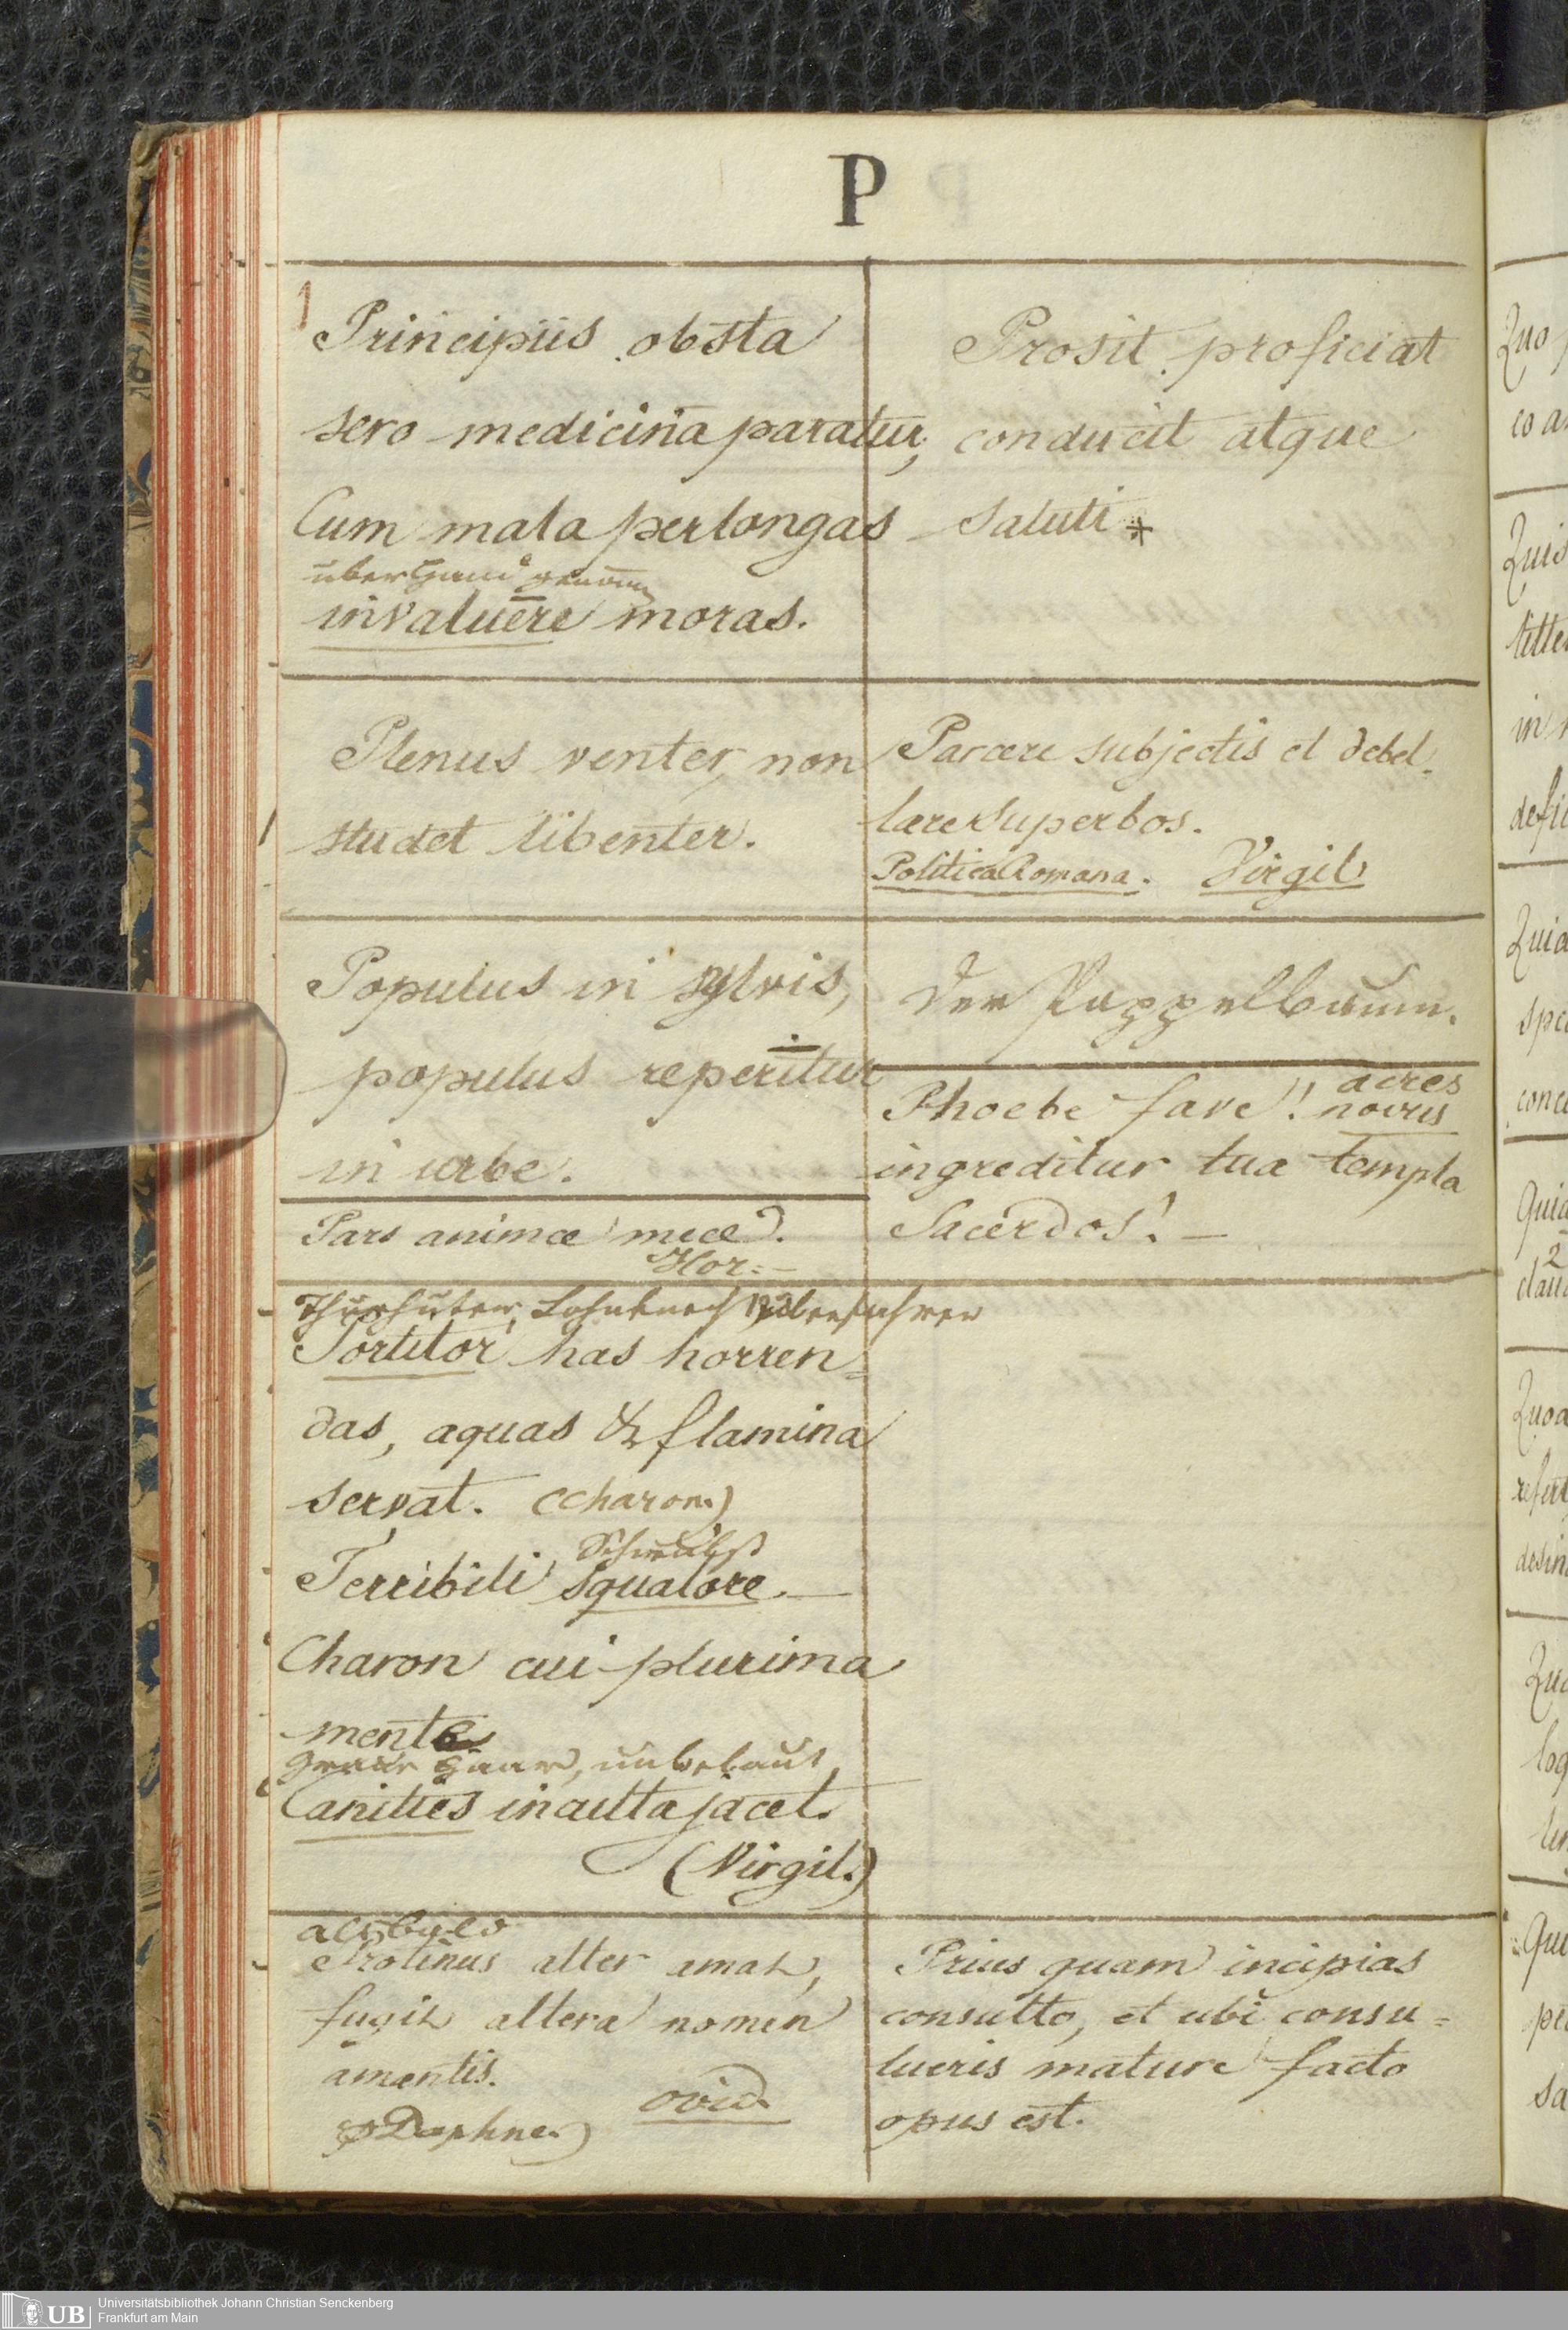 P
1
Principiis obsta
sero medicina paratur;
Cum mala per longas
überhand genom̄
invaluēre moras.
Prosit proficiat
conducit atque
saluti *
Plenus venter, non
studet libenter.
Parcere subjectis et debel-
lare superbos.
Politica Romana. Virgil
Populus in sylvis,
populus reperitur
in urbe.
Der Pappelbaum.
Pars animæ meæ.
Hor:
Phoebe fave! novus
ingreditur tua templa
Sacerdos! —
Thürhüter,
Portitor has horren=
das, aquas & flamina
servat. (Charon.)
Terribili squalore —
Charon cui plurima
mento
graue Haar, unbebaut
Canities inculta jacet.
(Virgil.)
Protinus alter amat,
fugit altera nomen
amantis.
Daphne.) Ovid.
Prius quam incipias
consulto, et ubi consu=
lueris mature facto
opus est.
Quo
co a
Quis
in
defi
conce
Qui
clau
desin
log
Qui
sa
UB
Universitätsbibliothek Johann Christian Senckenberg
Frankfurt am Main